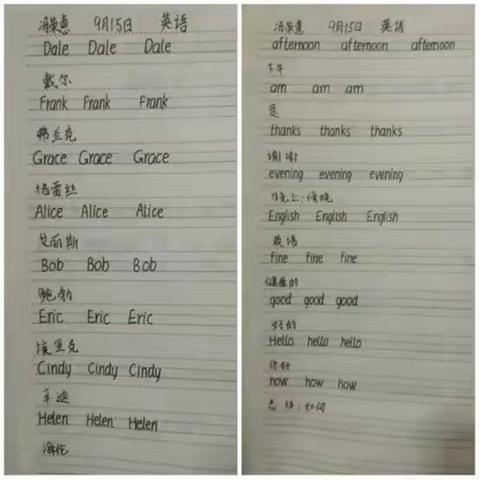 冯荣惠 9月15日 英语
Dale Dale Dale
戴尔
Frank Frank Frank
弗兰克
Grace Grace Grace
格蕾丝
Alice Alice Alice
艾丽斯
Bob Bob Bob
鲍勃
Eric Eric Eric
埃里克
Cindy Cindy Cindy
辛迪
Helen Helen Helen
海伦
冯荣惠 9月15日 英语
afternoon afternoon afternoon
下午
am am am
是
thanks thanks thanks
谢谢
evening evening evening
晚上;傍晚
English English English
英语
fine fine fine
健康的
good good good
好的
Hello hello hello
你好
how how how
怎样;如何